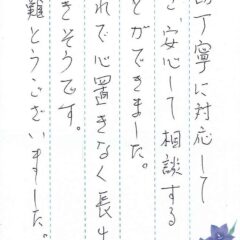 切丁寧に対応して
き、安心して相談する
とができました。
れで心置きなく長生
きそうです。
難とうございました。